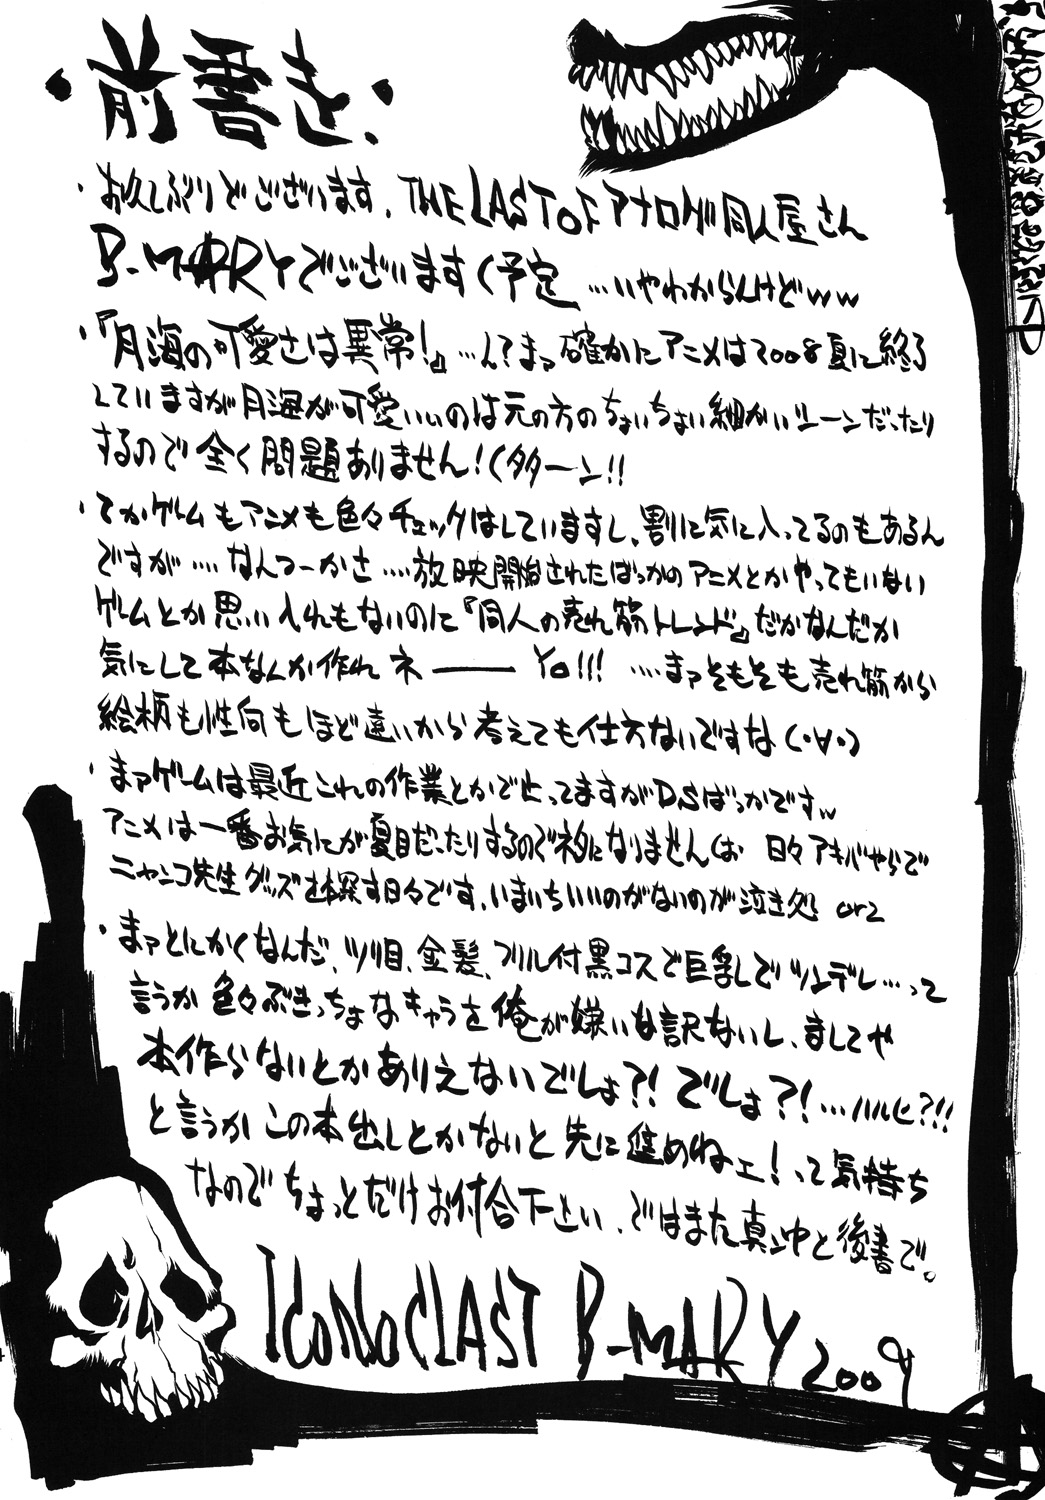 ・前書き・
・お久しぶりでございます、THE LAST OF アナログ同人屋さん
B-MARYでございます(予定 …いやわからんけどww
・『月海の可愛さは異常!』…え?まァ確かにアニメは2008夏に終了
していますが月海が可愛いいのは元の方のちょいちょい細かいシーンだったり
するので全く問題ありません!(タターン!!
・てかゲームもアニメも色々チェックはしていますし、割に気に入ってるのもあるん
ですが‥‥なんつーかさ‥‥放映開始されたばっかのアニメとかやってもいない
ゲームとか思い入れもないのに『同人の売れ筋トレンド』だかなんだか
気にして本なんか作れネ――Yo!!! ‥‥まァそもそも売れ筋から
絵柄も性向もほど遠いから考えても仕方ないですな(・∀・)
・まァゲームは最近これの作業とかで止ってますがDSばっかですw
アニメは一番お気にが夏目だったりするのでネタになりませんは 日々アキバやらで
ニャンコ先生グッズを探す日々です、いまいちいいのがないのが泣き処 orz
・まァとにかくなんだ、ツリ目、金髪、フリル付黒コスで巨乳でツンデレ…って
言うか色々ぶきっちょなキャラを俺が嫌いな訳ないし、ましてや
本作らないとかありえないでしょ?! でしょ?!…ハルヒ?!!
と言うかこの本出しとかないと先に進めねェ!って気持ち
なのでちょっとだけお付合下さい、ではまた真ン中と後書で。
ICONOCLAST B-MARY 2009